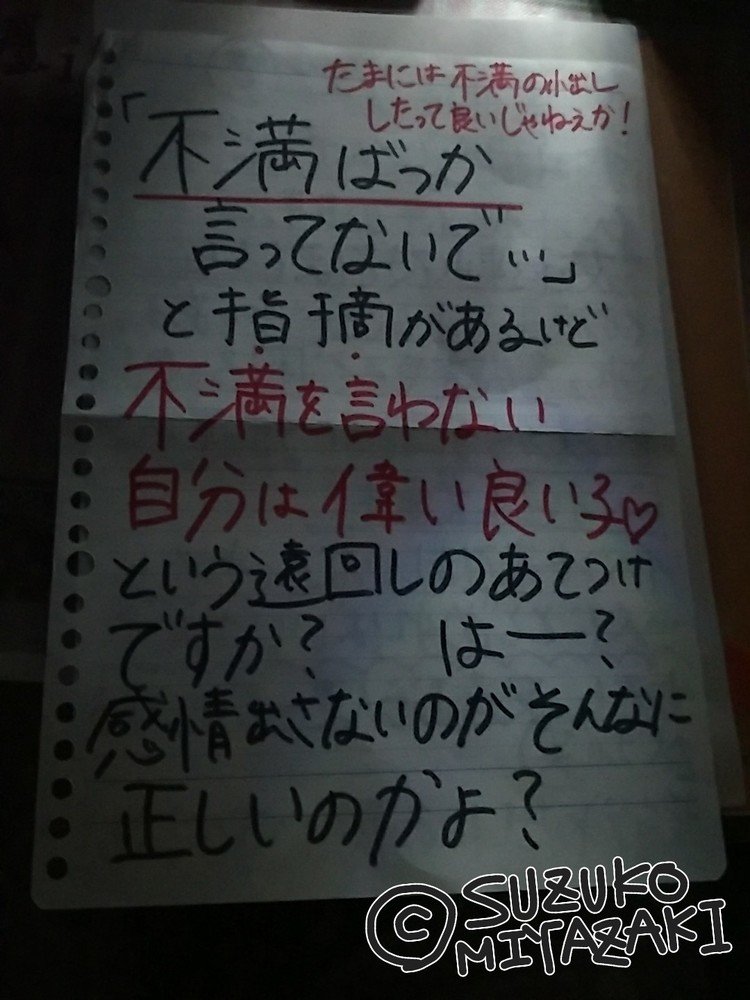 たまには不満の小出し
したって良いじゃねぇか！
「不満ばっか
言ってないで…」
と指摘があるけど
不満を言わない
自分は偉い良い子♡
という遠回しのあてつけ
ですか？　はー？
感情出さないのがそんなに
正しいのかよ？
©SUZUKO
MIYAZAKI